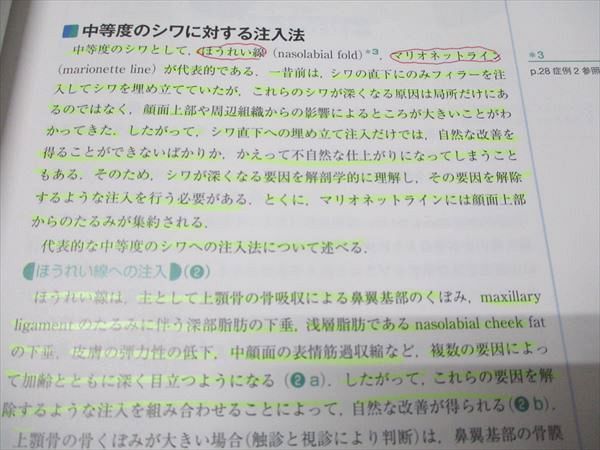 中等度のシワに対する注入法
中等度のシワとして，ほうれい線（nasolabial fold）*3，マリオネットライン
（marionette line）が代表的である．一昔前は，シワの直下にのみフィラーを注
入してシワを埋め立てていたが，これらのシワが深くなる原因は局所だけにあ
るのではなく，顔面上部や周辺組織からの影響によるところが大きいことがわ
かってきた．したがって，シワ直下への埋め立て注入だけでは，自然な改善を
得ることができないばかりか，かえって不自然な仕上がりになってしまうこと
もある．そのため，シワが深くなる要因を解剖学的に理解し，その要因を解除
するような注入を行う必要がある．とくに，マリオネットラインには顔面上部
からのたるみが集約される．
代表的な中等度のシワへの注入法について述べる．
ほうれい線への注入（❷）
ほうれい線は，主として上顎骨の骨吸収による鼻翼基部のくぼみ，maxillary
ligamentのたるみに伴う深部脂肪の下垂，浅層脂肪であるnasolabial cheek fat
の下垂，皮膚の弾力性の低下，中顔面の表情筋過収縮など，複数の要因によっ
て加齢とともに深く目立つようになる（❷a）．したがって，これらの要因を解
除するような注入を組み合わせることによって，自然な改善が得られる（❷b）．
上顎骨の骨くぼみが大きい場合（触診と視診により判断）は，鼻翼基部の骨膜
*3
p.28 症例2参照